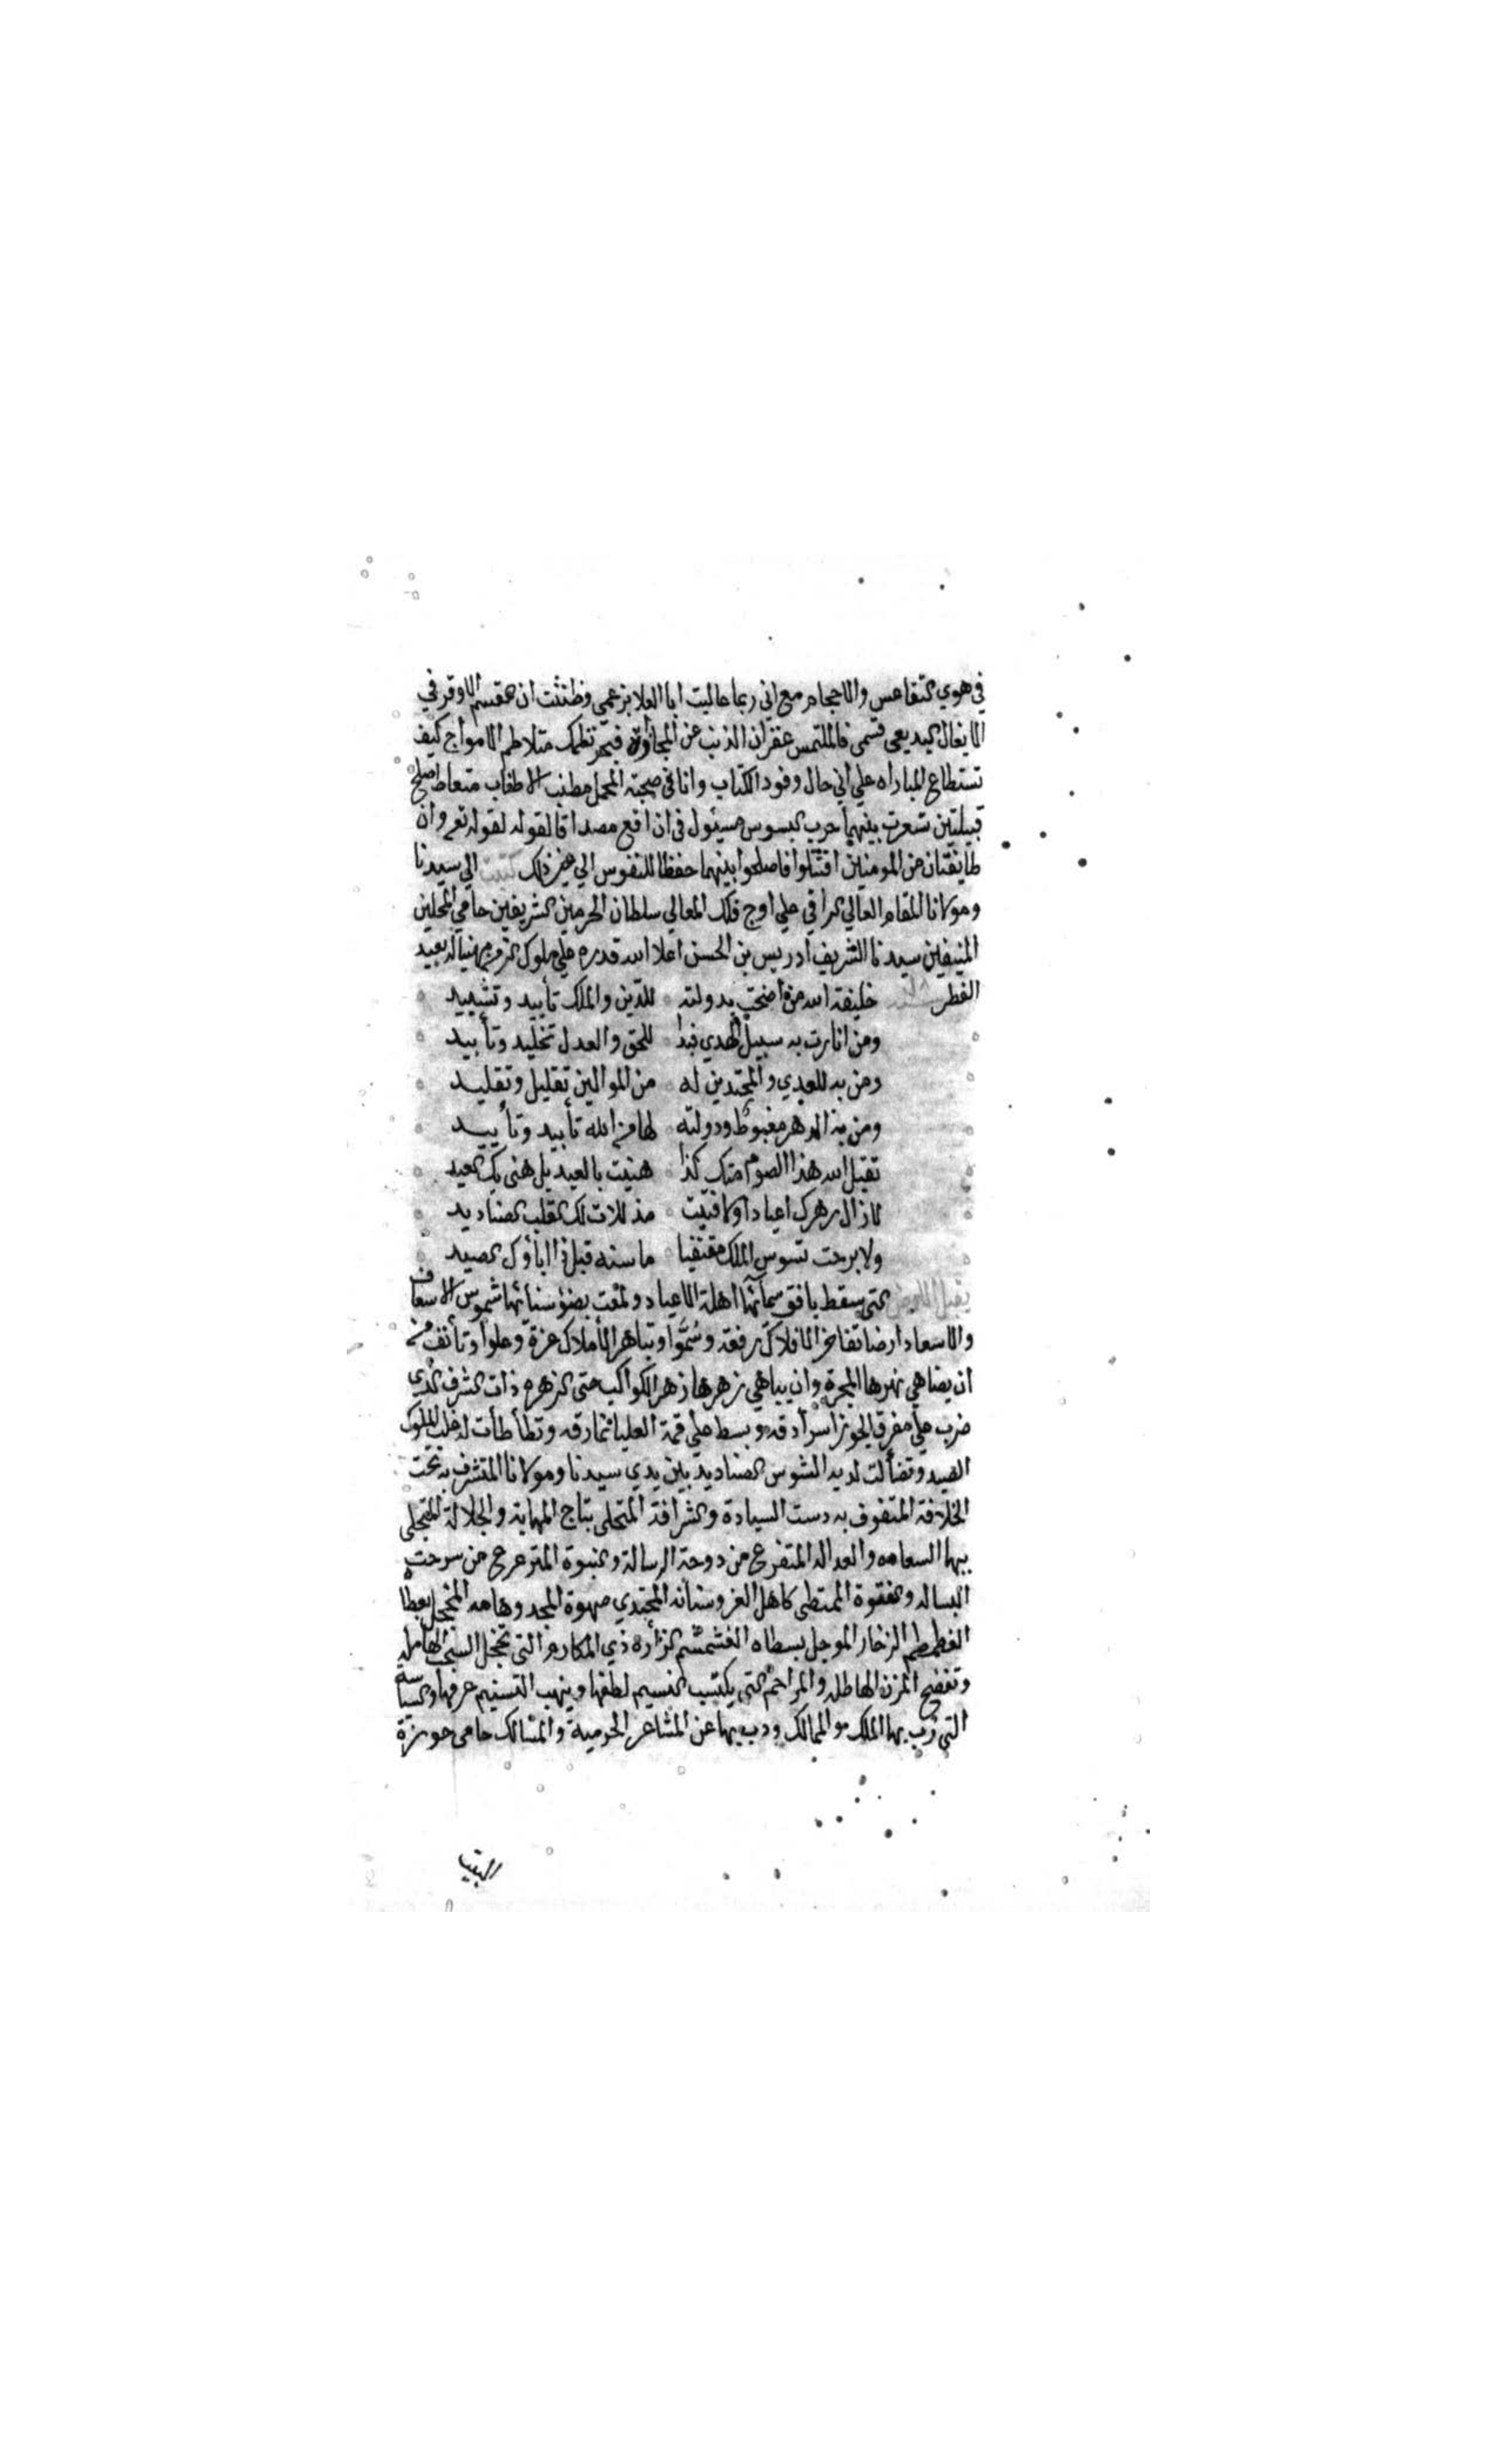 في هوي التقاعس والاحجام مع اني ربما عاليت ابا العلا بزعمي وظننت ان قسم الاوفر في
الايغال البديعي قسمي فالملتمس غفران الذنب عن المجاراة فبحر نظمك متلاطم الامواج كيف
تستطاع المباراه علي اني حال وفود الكتاب وانا في صحبة المحمل مطنب الاطناب متعاط اصلح
قبيلتين شعرت بينهما حرب البسوس مسئول في ان اقع مصداقا لقوله لقوله تع وان
طايفتان من المومنين اقتتلوا فاصلحوا بينهما حفظا للنفوس الي غير ذلك كتبت الي سيدنا
ومولانا المقام العالي الراقي علي اوج فلك المعالي سلطان الحرمين الشريفين حامي المحلين
المنيفين سيدنا الشريف ادريس بن الحسن اعلا الله قدره علي ملوك الزمن مهنيا له بعيد
الفطر خليفة الله من اضحت بدولته للدين والملك تأييد وتشييد
ومن انارت به سبيل الهدي فبدا للحق والعدل تخليد وتأبيد
ومن به للعدي والمجتدين له من الموالين تقليل وتقليد
ومن به الدهر مغبوط ودولته لها من الله تأبيد وتأييد
تقبل الله هذا الصوم منك كذا هنيت بالعيد بل هني بك العيد
لا زال دهرك اعيادا ولا فتيت مذللات لك الغلب الصناديد
ولا برحت تسوس الملك مقتفيا ما سنه قبل ذا اباؤك الصيد
يقبل الارض التي سقط بافق سمائها اهلة الاعياد ولمعت بضؤ سنائها شموس الاسعاف
والاسعاد ارضا تفاخر الافلاك رفعة وسُمُّوا وتباهر الأملاك عزة وعلوا وتأنف من
ان يضاهي نهرها المجرة وان يباهي زهرها زهر الكواكب حتى الزهره ذات الشرف الذي
ضرب علي مفرق الجوزا سرادقه وبسط علي قمة العليا نمارقه وتطأطأت له غلب الملوك
الصيد وتضألت لديه الشوس الصناديد بين يدي سيدنا ومولانا المتشرف به تخت
الخلافة المتفوف به دست السيادة والشرافة المتحلي بتاج المهابة والجلالة المتجلي
بهما السعاده والعداله المتفرع من دوحة الرسالة والنبوة المترعرع من سرحت
البساله والفقوة الممتطي كاهل العز وسنانه المجتدي صهوة المجد وهامه المخجل بعطا
الغطمطم الزخار الموجل بسطاه الغشمشم الزأره ذي المكارم التي تخجل السحب الهامله
وتفضح المزن الهاطله والمراحم التي يكتسب النسيم لطفها وينهب التسنيم عرفها والسياسة
التي رب بها الملك والممالك وذب بها عن المشاعر الحرمية والمسالك حامي حوزة
البيت